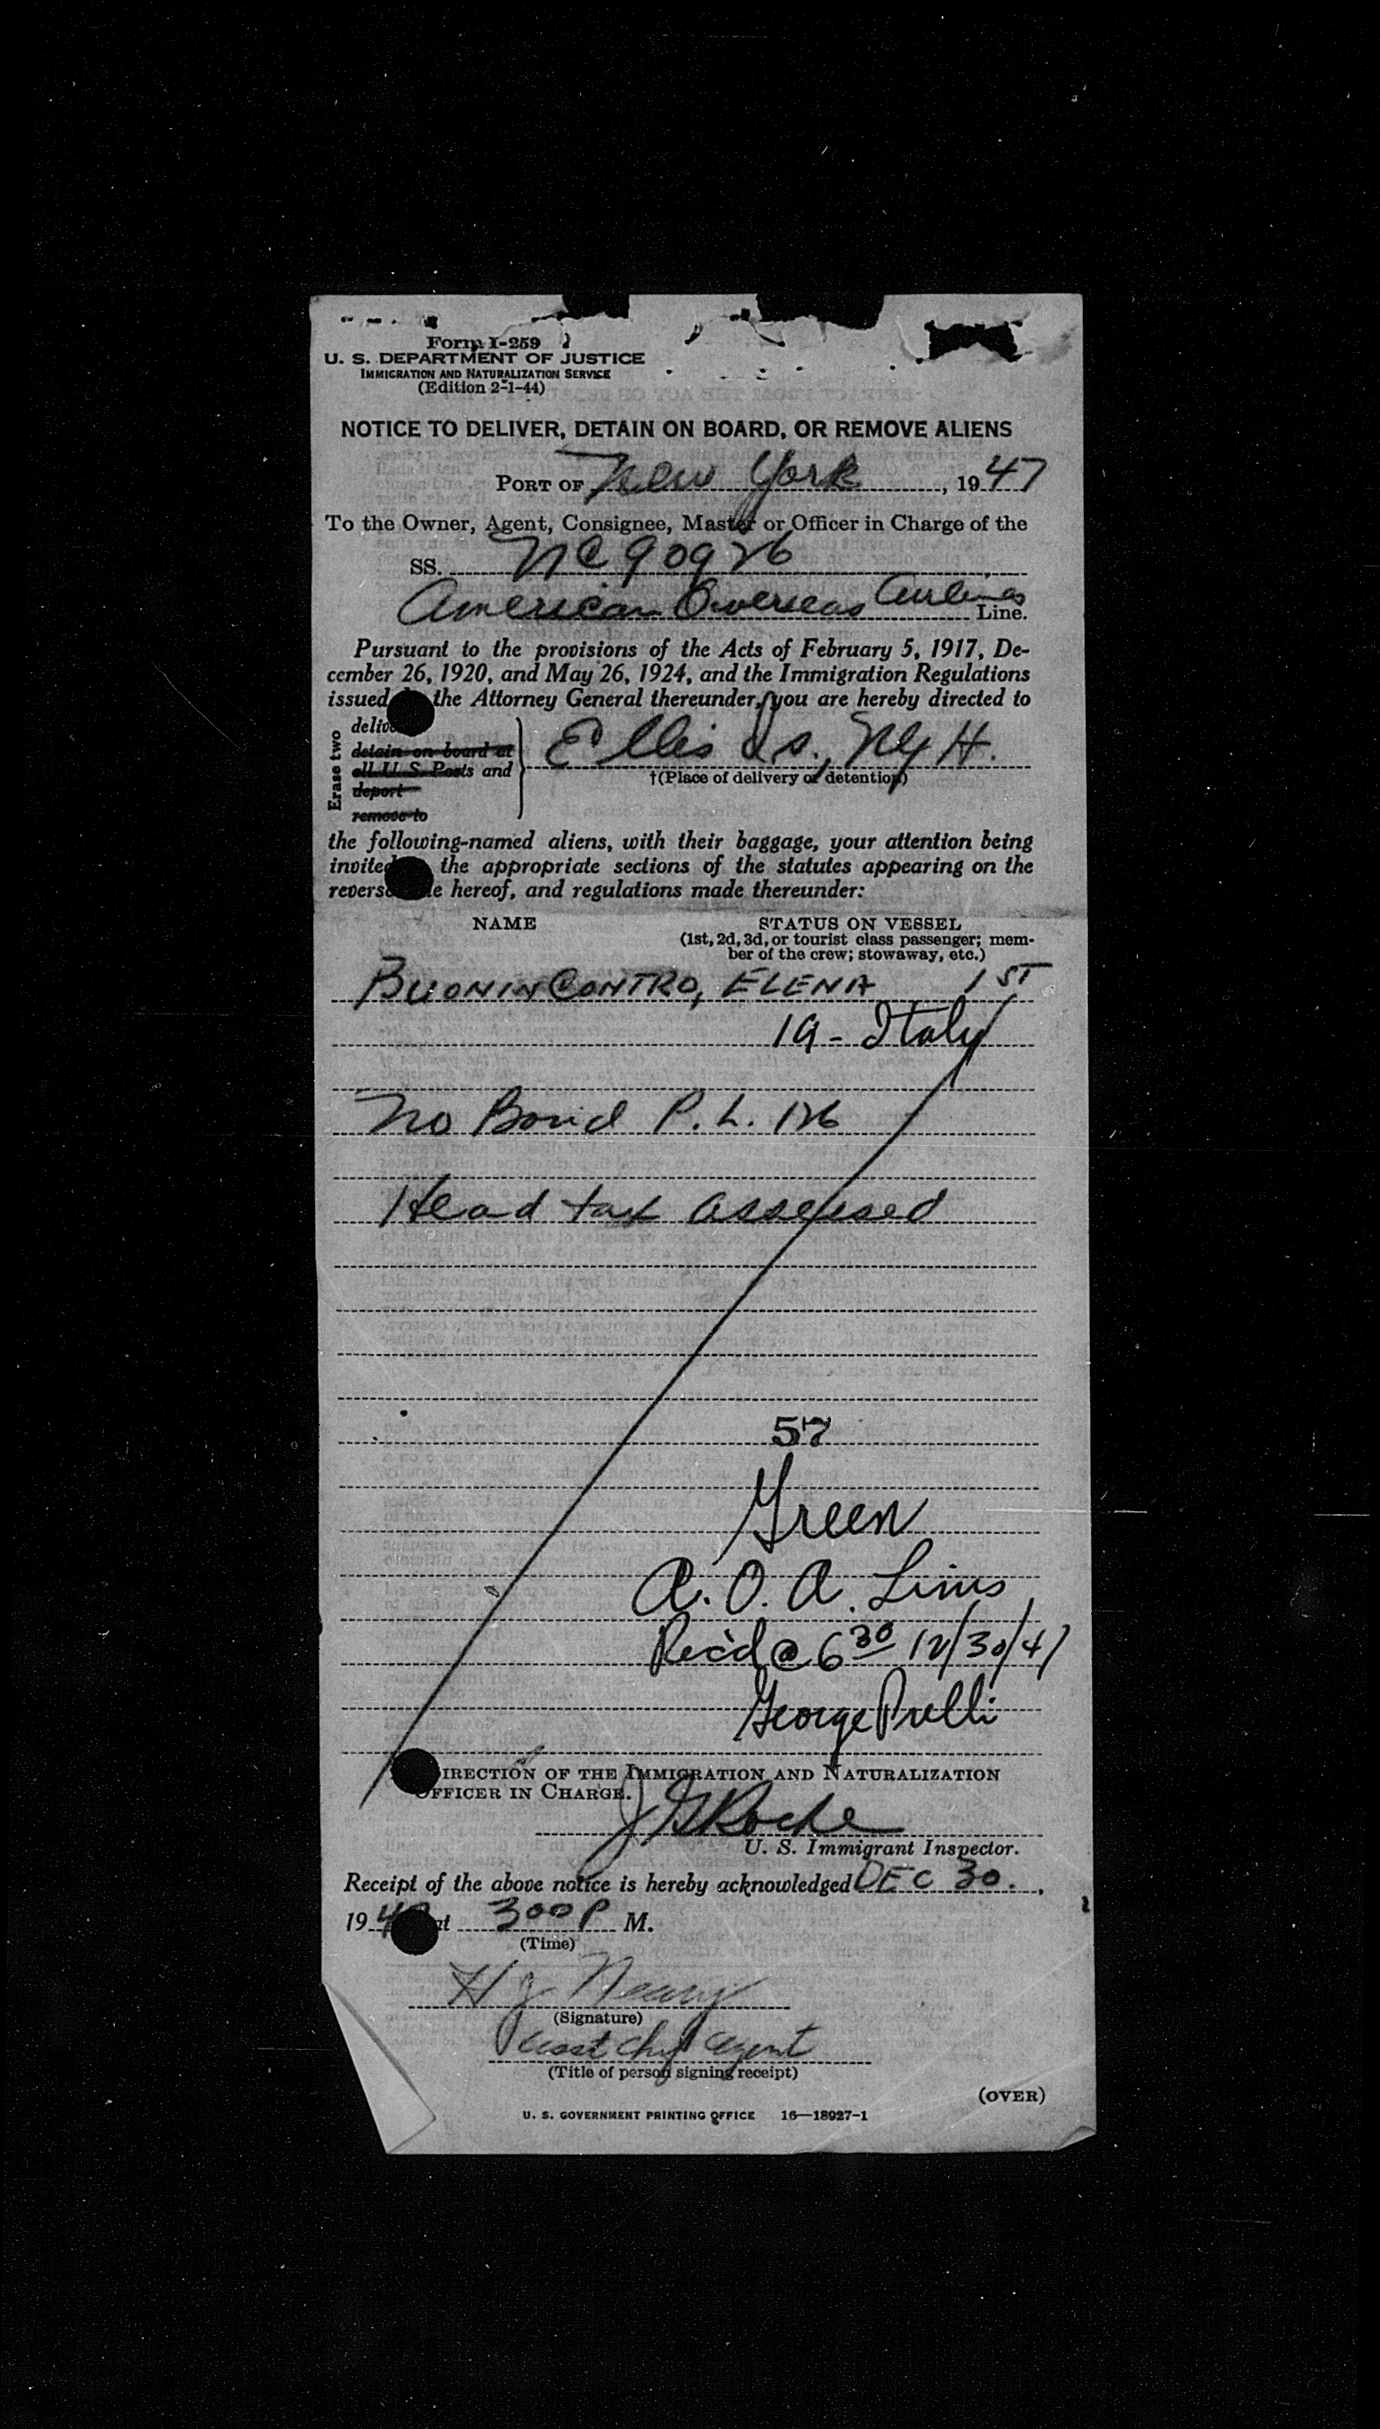 Form I-259
U. S. DEPARTMENT OF JUSTICE
IMMIGRATION AND NATURALIZATION SERVICE
(Edition 2-1-44)
NOTICE TO DELIVER, DETAIN ON BOARD, OR REMOVE ALIENS
PORT OF New York, 1947
To the Owner, Agent, Consignee, Master or Officer in Charge of the
SS. NC 90926
American Overseas Airlines Line.
Pursuant to the provisions of the Acts of February 5, 1917, De-
cember 26, 1920, and May 26, 1924, and the Immigration Regulations
issued the Attorney General thereunder, you are hereby directed to
Erase two
deliver
detain on board at
all U. S. Ports and
deport
remove to
Ellis Is., NYH.
†(Place of delivery or detention)
the following-named aliens, with their baggage, your attention being
invited the appropriate sections of the statutes appearing on the
reverse hereof, and regulations made thereunder:
NAME STATUS ON VESSEL
(1st, 2d, 3d, or tourist class passenger; mem-
ber of the crew; stowaway, etc.)
BUONINCONTRO, ELENA 1ST
19 - Italy
No Bond P. L. 126
Head tax assessed
57
Green
A. O. A. Lines
Rec'd @ 6 30 12/30/47
George Prelli
DIRECTION OF THE IMMIGRATION AND NATURALIZATION
OFFICER IN CHARGE.
J G Roche
U. S. Immigrant Inspector.
Receipt of the above notice is hereby acknowledged DEC 30.,
1947 at 300 P M.
(Time)
H J Neary
(Signature)
asst chf agent
(Title of person signing receipt)
(OVER)
U. S. GOVERNMENT PRINTING OFFICE 16—18927-1